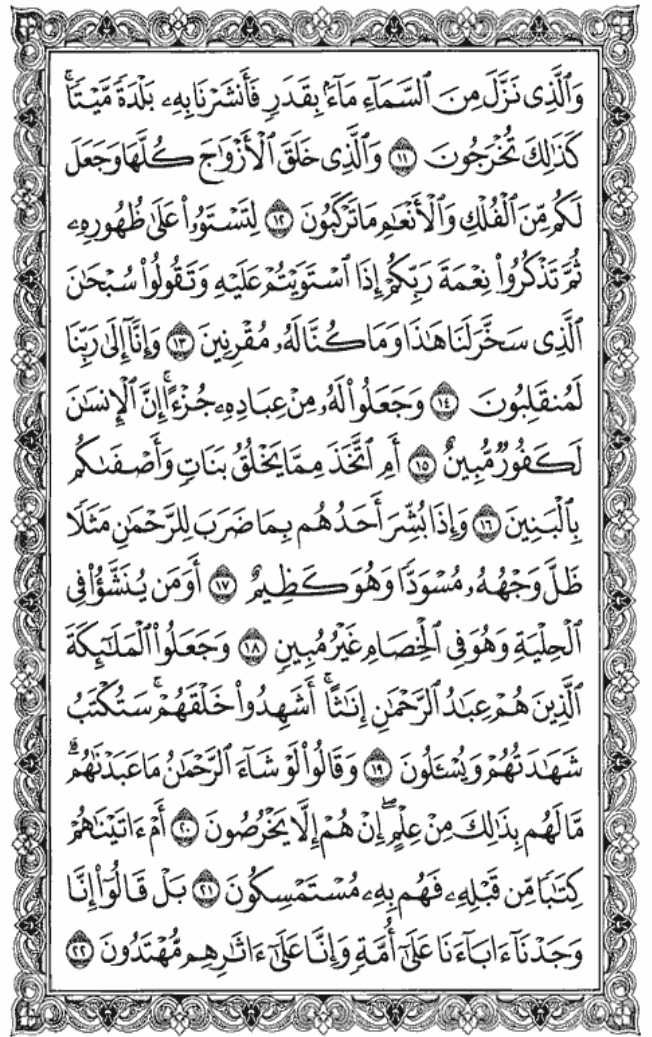 وَٱلَّذِى نَزَّلَ مِنَ ٱلسَّمَآءِ مَآءًۢ بِقَدَرٍ فَأَنشَرْنَا بِهِۦ بَلْدَةً مَّيْتًاۚ
كَذَٰلِكَ تُخْرَجُونَ ١١ وَٱلَّذِى خَلَقَ ٱلْأَزْوَٰجَ كُلَّهَا وَجَعَلَ
لَكُم مِّنَ ٱلْفُلْكِ وَٱلْأَنْعَٰمِ مَا تَرْكَبُونَ ١٢ لِتَسْتَوُۥا۟ عَلَىٰ ظُهُورِهِۦ
ثُمَّ تَذْكُرُوا۟ نِعْمَةَ رَبِّكُمْ إِذَا ٱسْتَوَيْتُمْ عَلَيْهِ وَتَقُولُوا۟ سُبْحَٰنَ
ٱلَّذِى سَخَّرَ لَنَا هَٰذَا وَمَا كُنَّا لَهُۥ مُقْرِنِينَ ١٣ وَإِنَّآ إِلَىٰ رَبِّنَا
لَمُنقَلِبُونَ ١٤ وَجَعَلُوا۟ لَهُۥ مِنْ عِبَادِهِۦ جُزْءًاۚ إِنَّ ٱلْإِنسَٰنَ
لَكَفُورٌ مُّبِينٌ ١٥ أَمِ ٱتَّخَذَ مِمَّا يَخْلُقُ بَنَاتٍ وَأَصْفَىٰكُم
بِٱلْبَنِينَ ١٦ وَإِذَا بُشِّرَ أَحَدُهُم بِمَا ضَرَبَ لِلرَّحْمَٰنِ مَثَلًا
ظَلَّ وَجْهُهُۥ مُسْوَدًّا وَهُوَ كَظِيمٌ ١٧ أَوَمَن يُنَشَّؤُا۟ فِى
ٱلْحِلْيَةِ وَهُوَ فِى ٱلْخِصَامِ غَيْرُ مُبِينٍ ١٨ وَجَعَلُوا۟ ٱلْمَلَٰٓئِكَةَ
ٱلَّذِينَ هُمْ عِبَٰدُ ٱلرَّحْمَٰنِ إِنَٰثًاۚ أَشَهِدُوا۟ خَلْقَهُمْۚ سَتُكْتَبُ
شَهَٰدَتُهُمْ وَيُسْـَٔلُونَ ١٩ وَقَالُوا۟ لَوْ شَآءَ ٱلرَّحْمَٰنُ مَا عَبَدْنَٰهُمۗ
مَّا لَهُم بِذَٰلِكَ مِنْ عِلْمٍۖ إِنْ هُمْ إِلَّا يَخْرُصُونَ ٢٠ أَمْ ءَاتَيْنَٰهُمْ
كِتَٰبًا مِّن قَبْلِهِۦ فَهُم بِهِۦ مُسْتَمْسِكُونَ ٢١ بَلْ قَالُوٓا۟ إِنَّا
وَجَدْنَآ ءَابَآءَنَا عَلَىٰٓ أُمَّةٍ وَإِنَّا عَلَىٰٓ ءَاثَٰرِهِم مُّهْتَدُونَ ٢٢